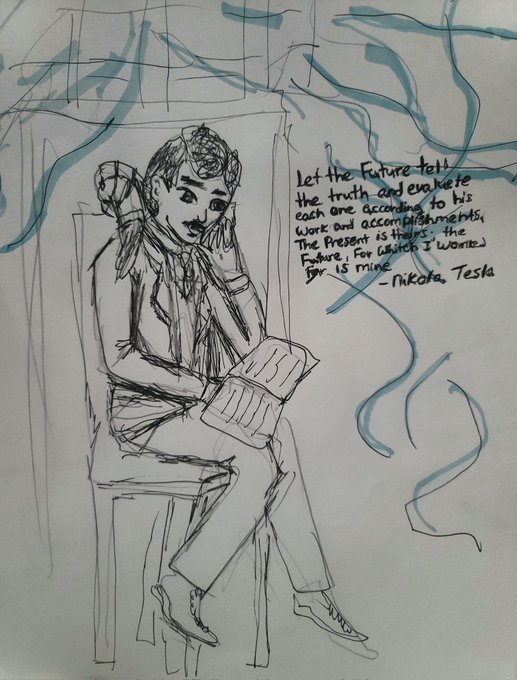 Let the Future tell
the truth and evaluate
each one according to his
work and accomplishments.
The Present is theirs. the
Future, For whitch I worked
For is mine
- nikola Tesla